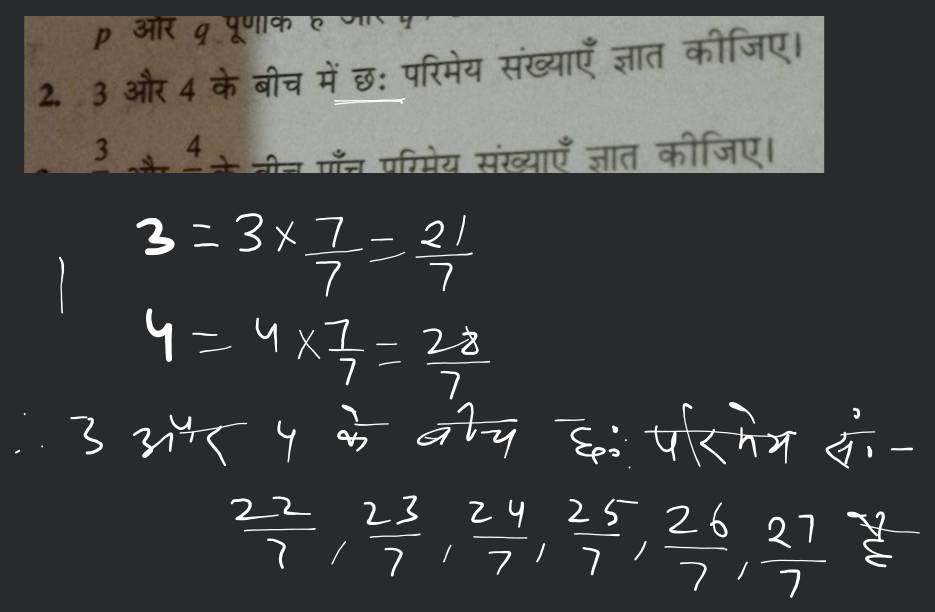 p और q पूर्णांक है और q
2. 3 और 4 के बीच में छः परिमेय संख्याएँ ज्ञात कीजिए।
3 और 4 के बीच पाँच परिमेय संख्याएँ ज्ञात कीजिए।
3 = 3 × 7/7 = 21/7
4 = 4 × 7/7 = 28/7
∴ 3 और 4 के बीच छः परिमेय सं. –
22/7, 23/7, 24/7, 25/7, 26/7, 27/7 हैं